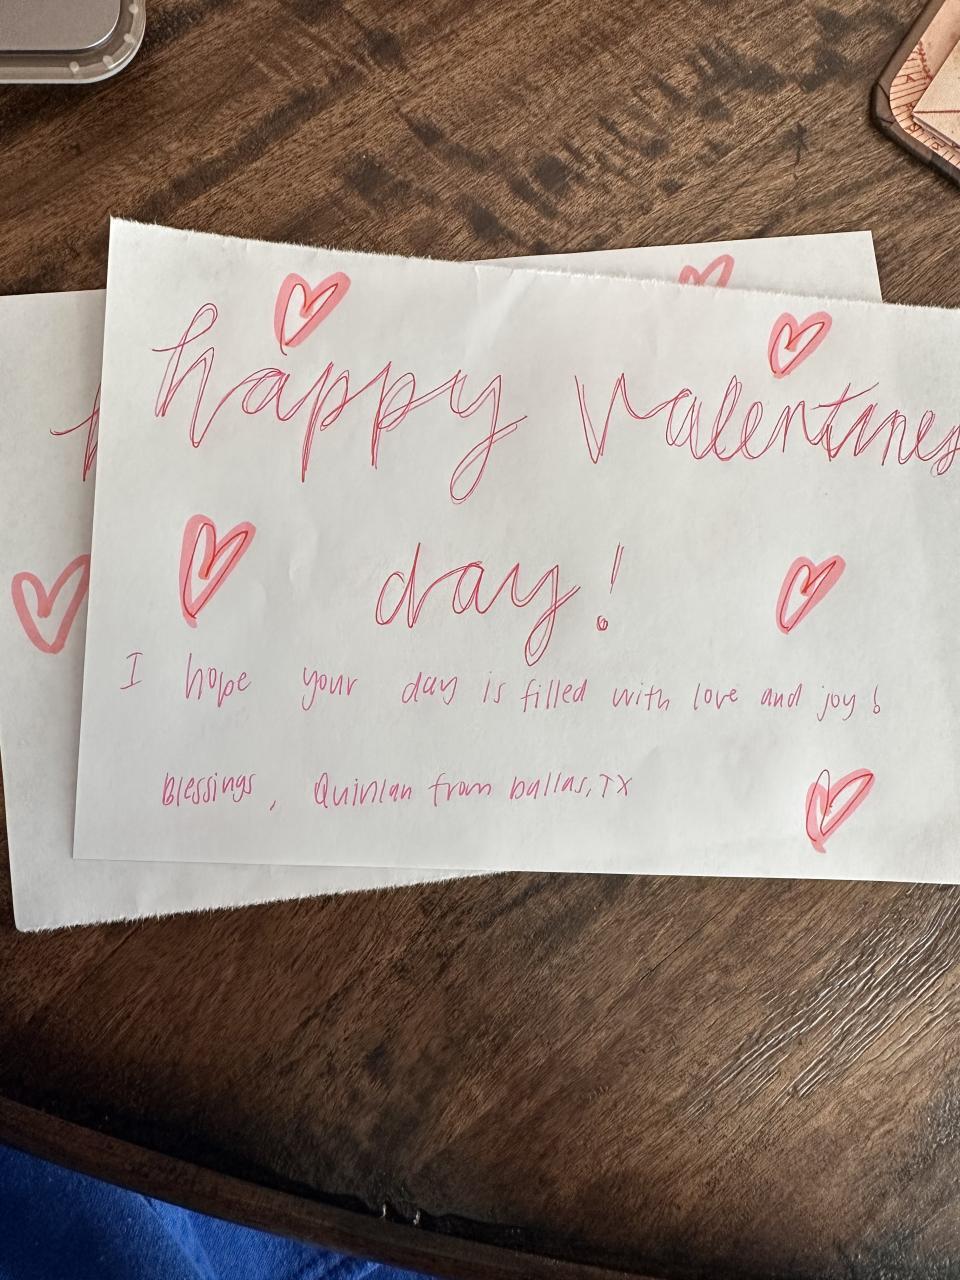 happy valentines
day!
I hope your day is filled with love and joy!
Blessings, Quinlan from Dallas, TX